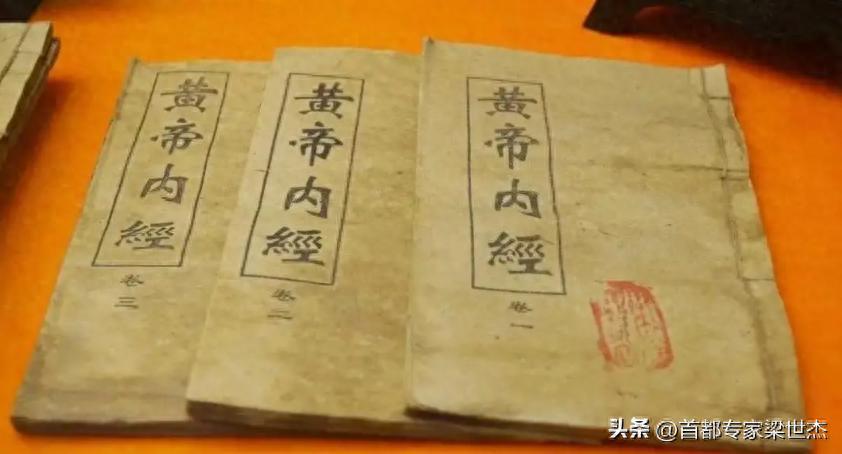 黄帝内經
卷三
黄帝内經
卷二
黄帝内經
卷一
头条 @首都专家梁世杰